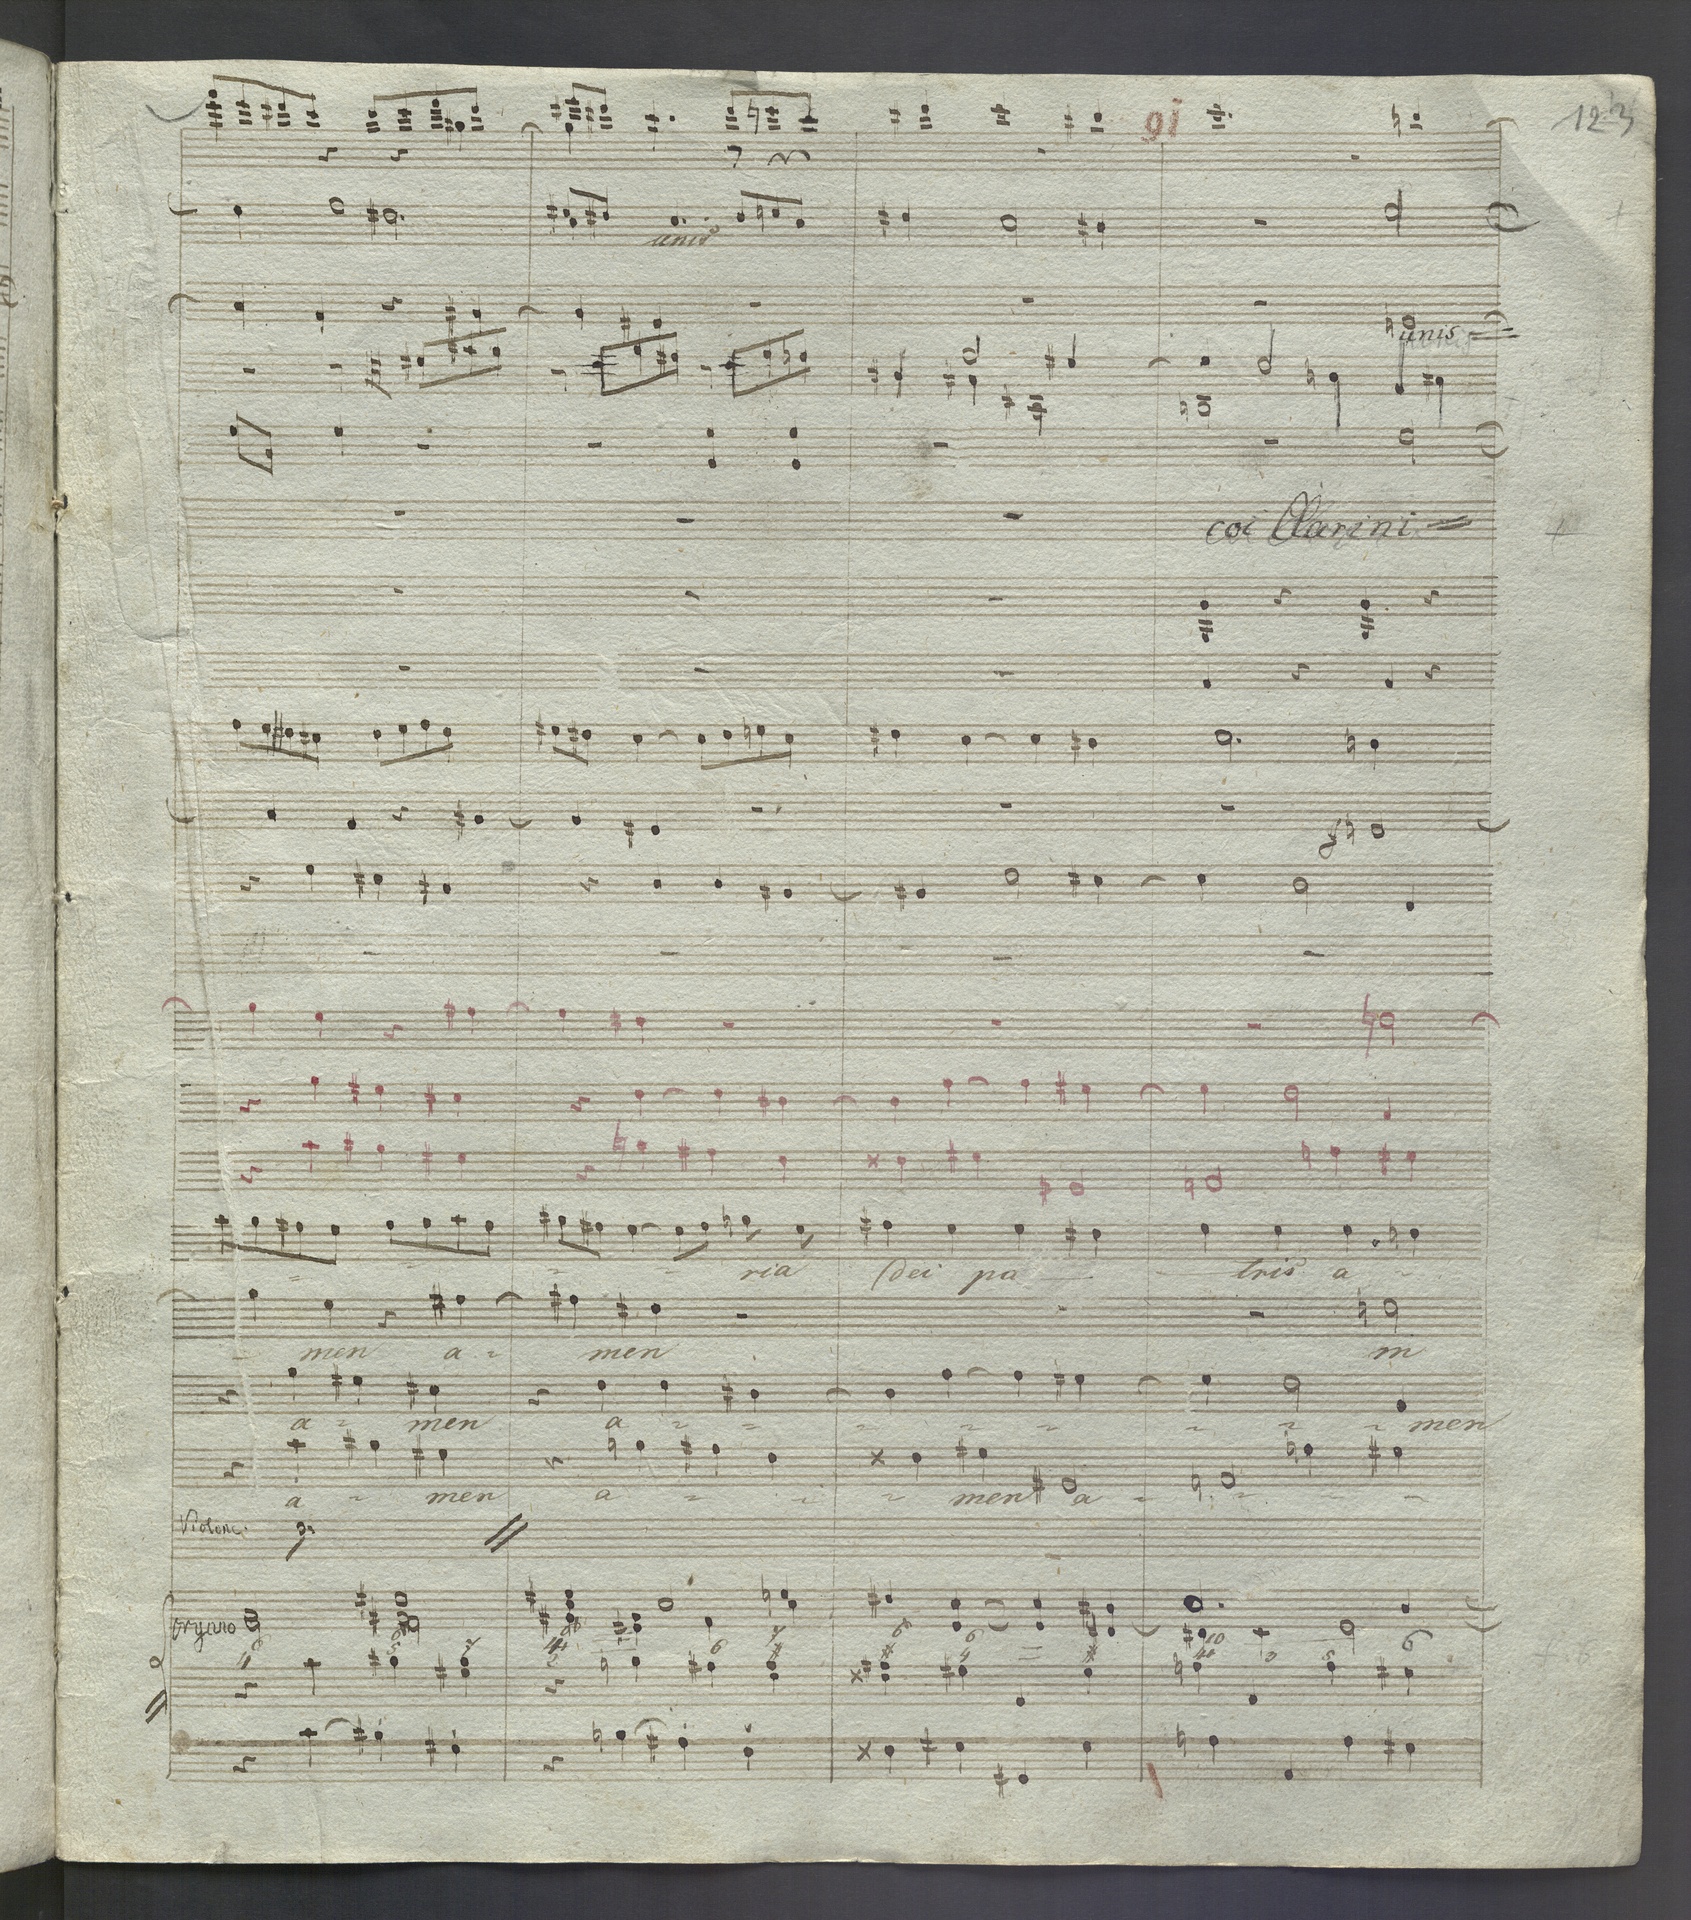 123
gi
unis
unis =
coi Clarini =
ria Dei pa - tris a -
- men a - men m
a - men a - - - - - - - - men
a - men a - - - men a - - - -
Violonc:
organo
6 6 6
4 5 7 4 2 6 7 # # 4 # 10 4 2 5